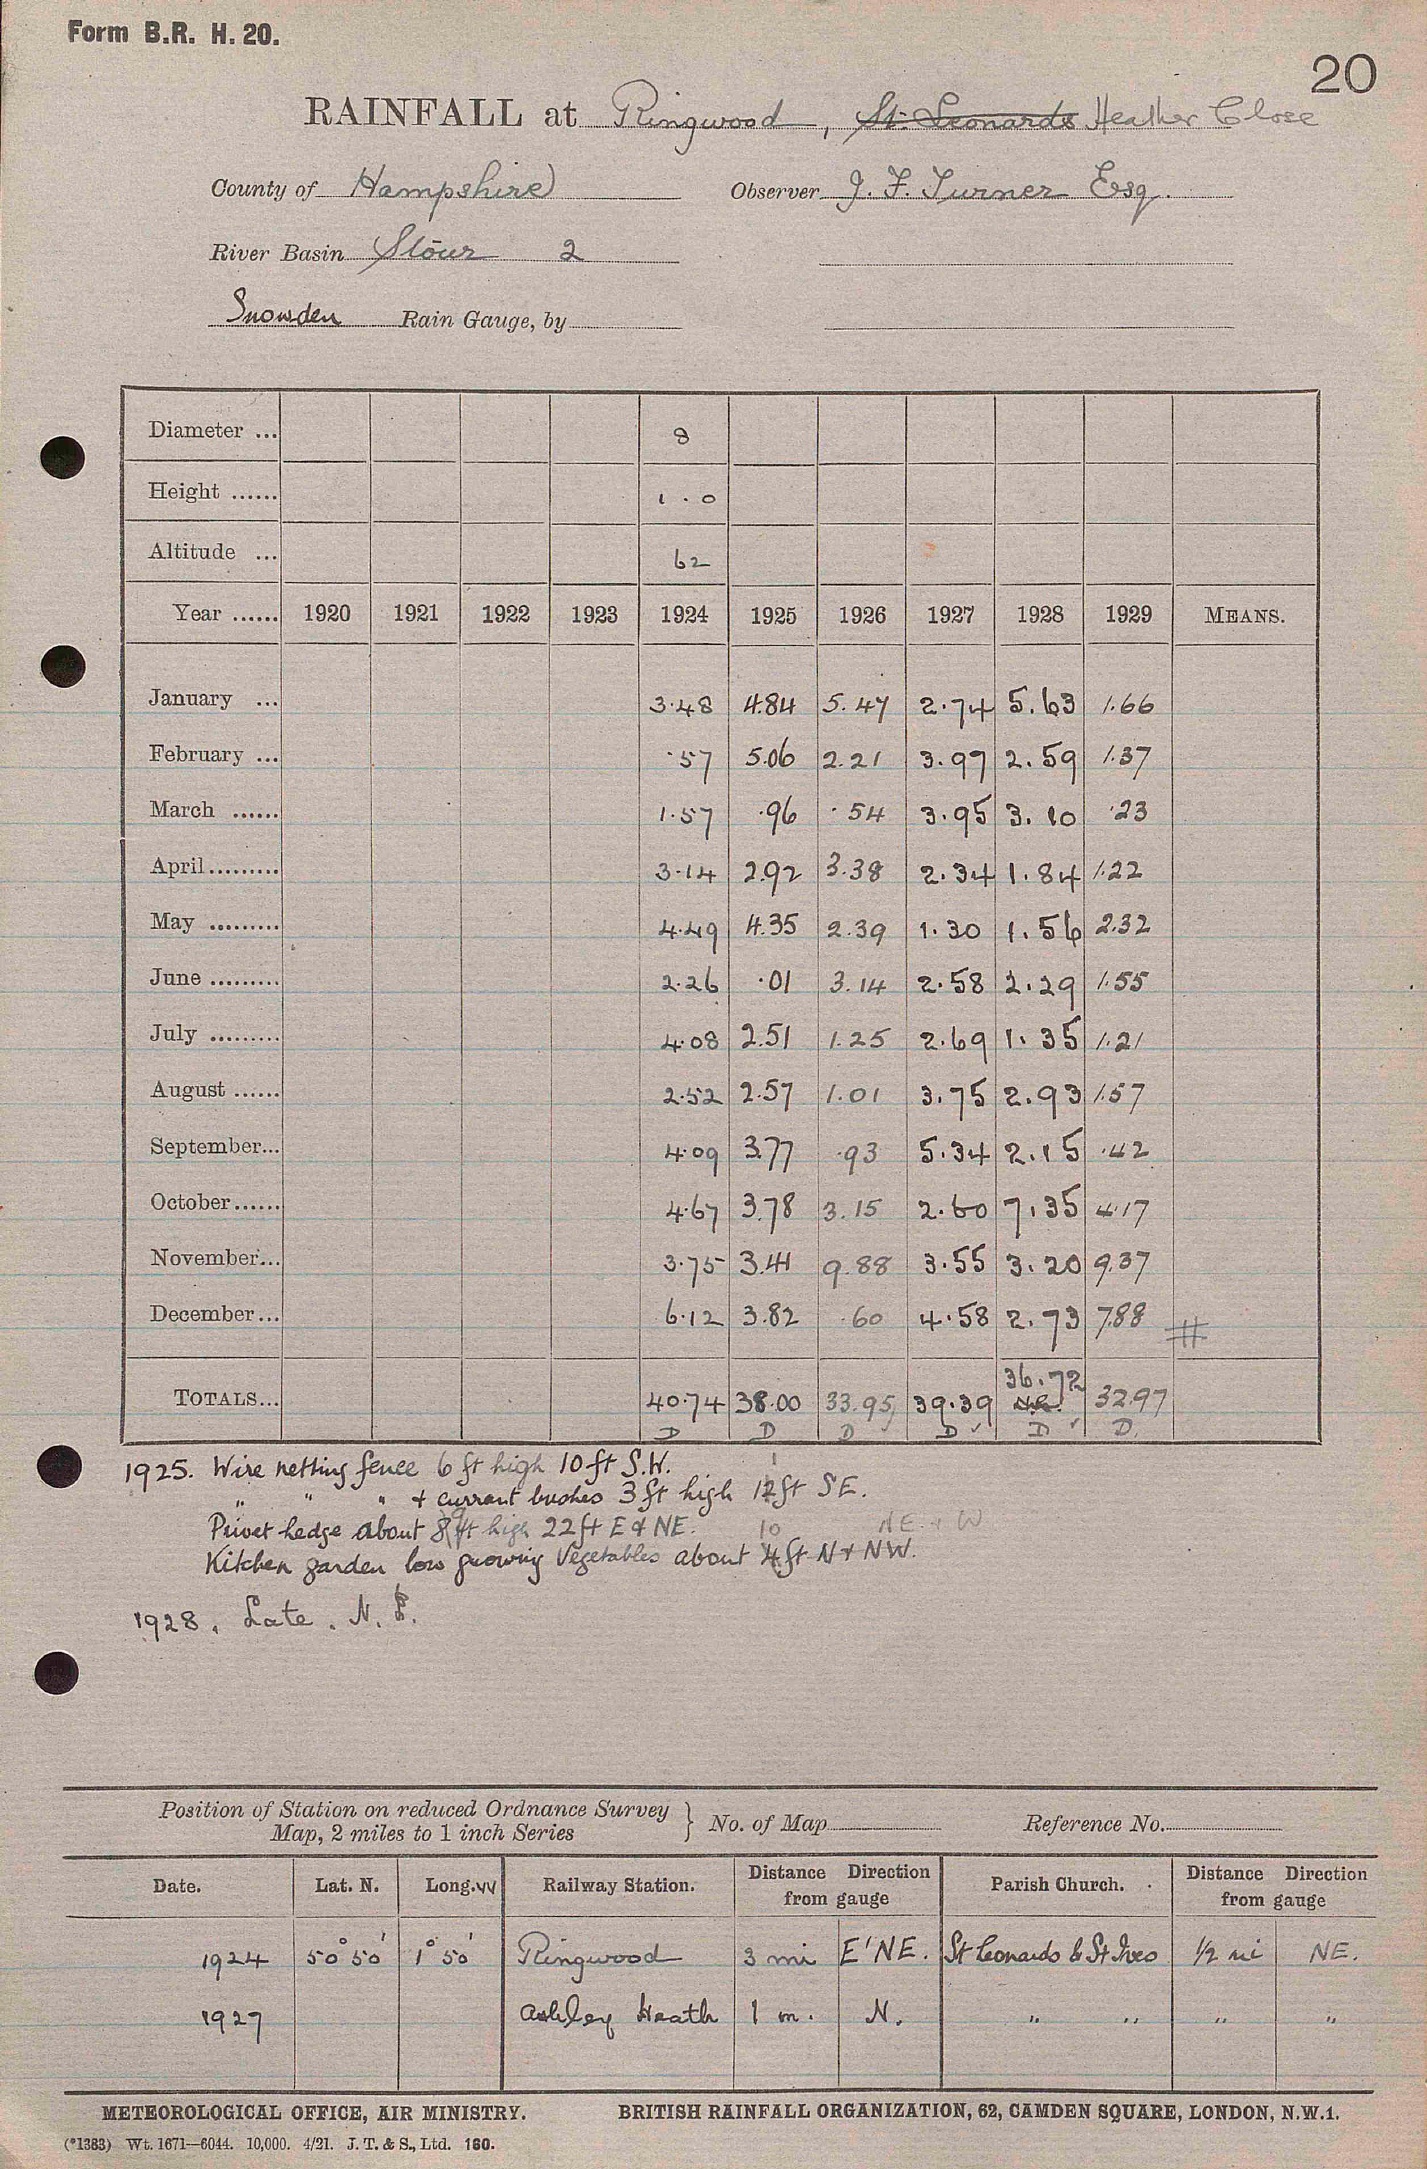 Form B.R. H. 20.
20
RAINFALL at Ringwood, St. Leonards Heather Close
County of Hampshire Observer J. F. Turner Esq.
River Basin Stour 2
Snowden Rain Gauge, by
Diameter ... 8
Height ...... 1.0
Altitude ... 62
Year ...... 1920 1921 1922 1923 1924 1925 1926 1927 1928 1929 MEANS.
January ... 3.48 4.84 5.47 2.74 5.63 1.66
February ... .57 5.06 2.21 3.97 2.59 1.37
March ...... 1.57 .96 .54 3.95 3.10 .23
April......... 3.14 2.92 3.38 2.34 1.84 1.22
May ......... 4.49 4.35 2.39 1.30 1.56 2.32
June ......... 2.26 .01 3.14 2.58 2.29 1.55
July ......... 4.08 2.51 1.25 2.69 1.35 1.21
August ...... 2.52 2.57 1.01 3.75 2.93 1.57
September... 4.09 3.77 .93 5.34 2.15 .42
October...... 4.67 3.78 3.15 2.60 7.35 4.17
November... 3.75 3.41 9.88 3.55 3.20 9.37
December... 6.12 3.82 .60 4.58 2.73 7.88 #
TOTALS... 40.74 38.00 33.95 39.39 36.72 32.97
D D D D ✓ D ✓ D.
1925. Wire netting fence 6 ft high 10 ft S.W.
" " " & currant bushes 3 ft high 12 ft SE.
Privet hedge about ft high 22 ft E & NE. 10 NE & W
Kitchen garden low growing Vegetables about 4 ft N & NW.
1928. Late. N.
Position of Station on reduced Ordnance Survey Map, 2 miles to 1 inch Series } No. of Map Reference No.
Date. Lat. N. Long. W Railway Station. Distance Direction from gauge Parish Church. Distance Direction from gauge
1924 50° 50' 1° 50' Ringwood 3 mi E'NE. St Leonards & St Ives 1/2 mi NE.
1927 Ashley Heath 1 m. N. " " " "
METEOROLOGICAL OFFICE, AIR MINISTRY. BRITISH RAINFALL ORGANIZATION, 62, CAMDEN SQUARE, LONDON, N.W.1.
(*1383) Wt. 1671—6044. 10,000. 4/21. J. T. & S., Ltd. 160.